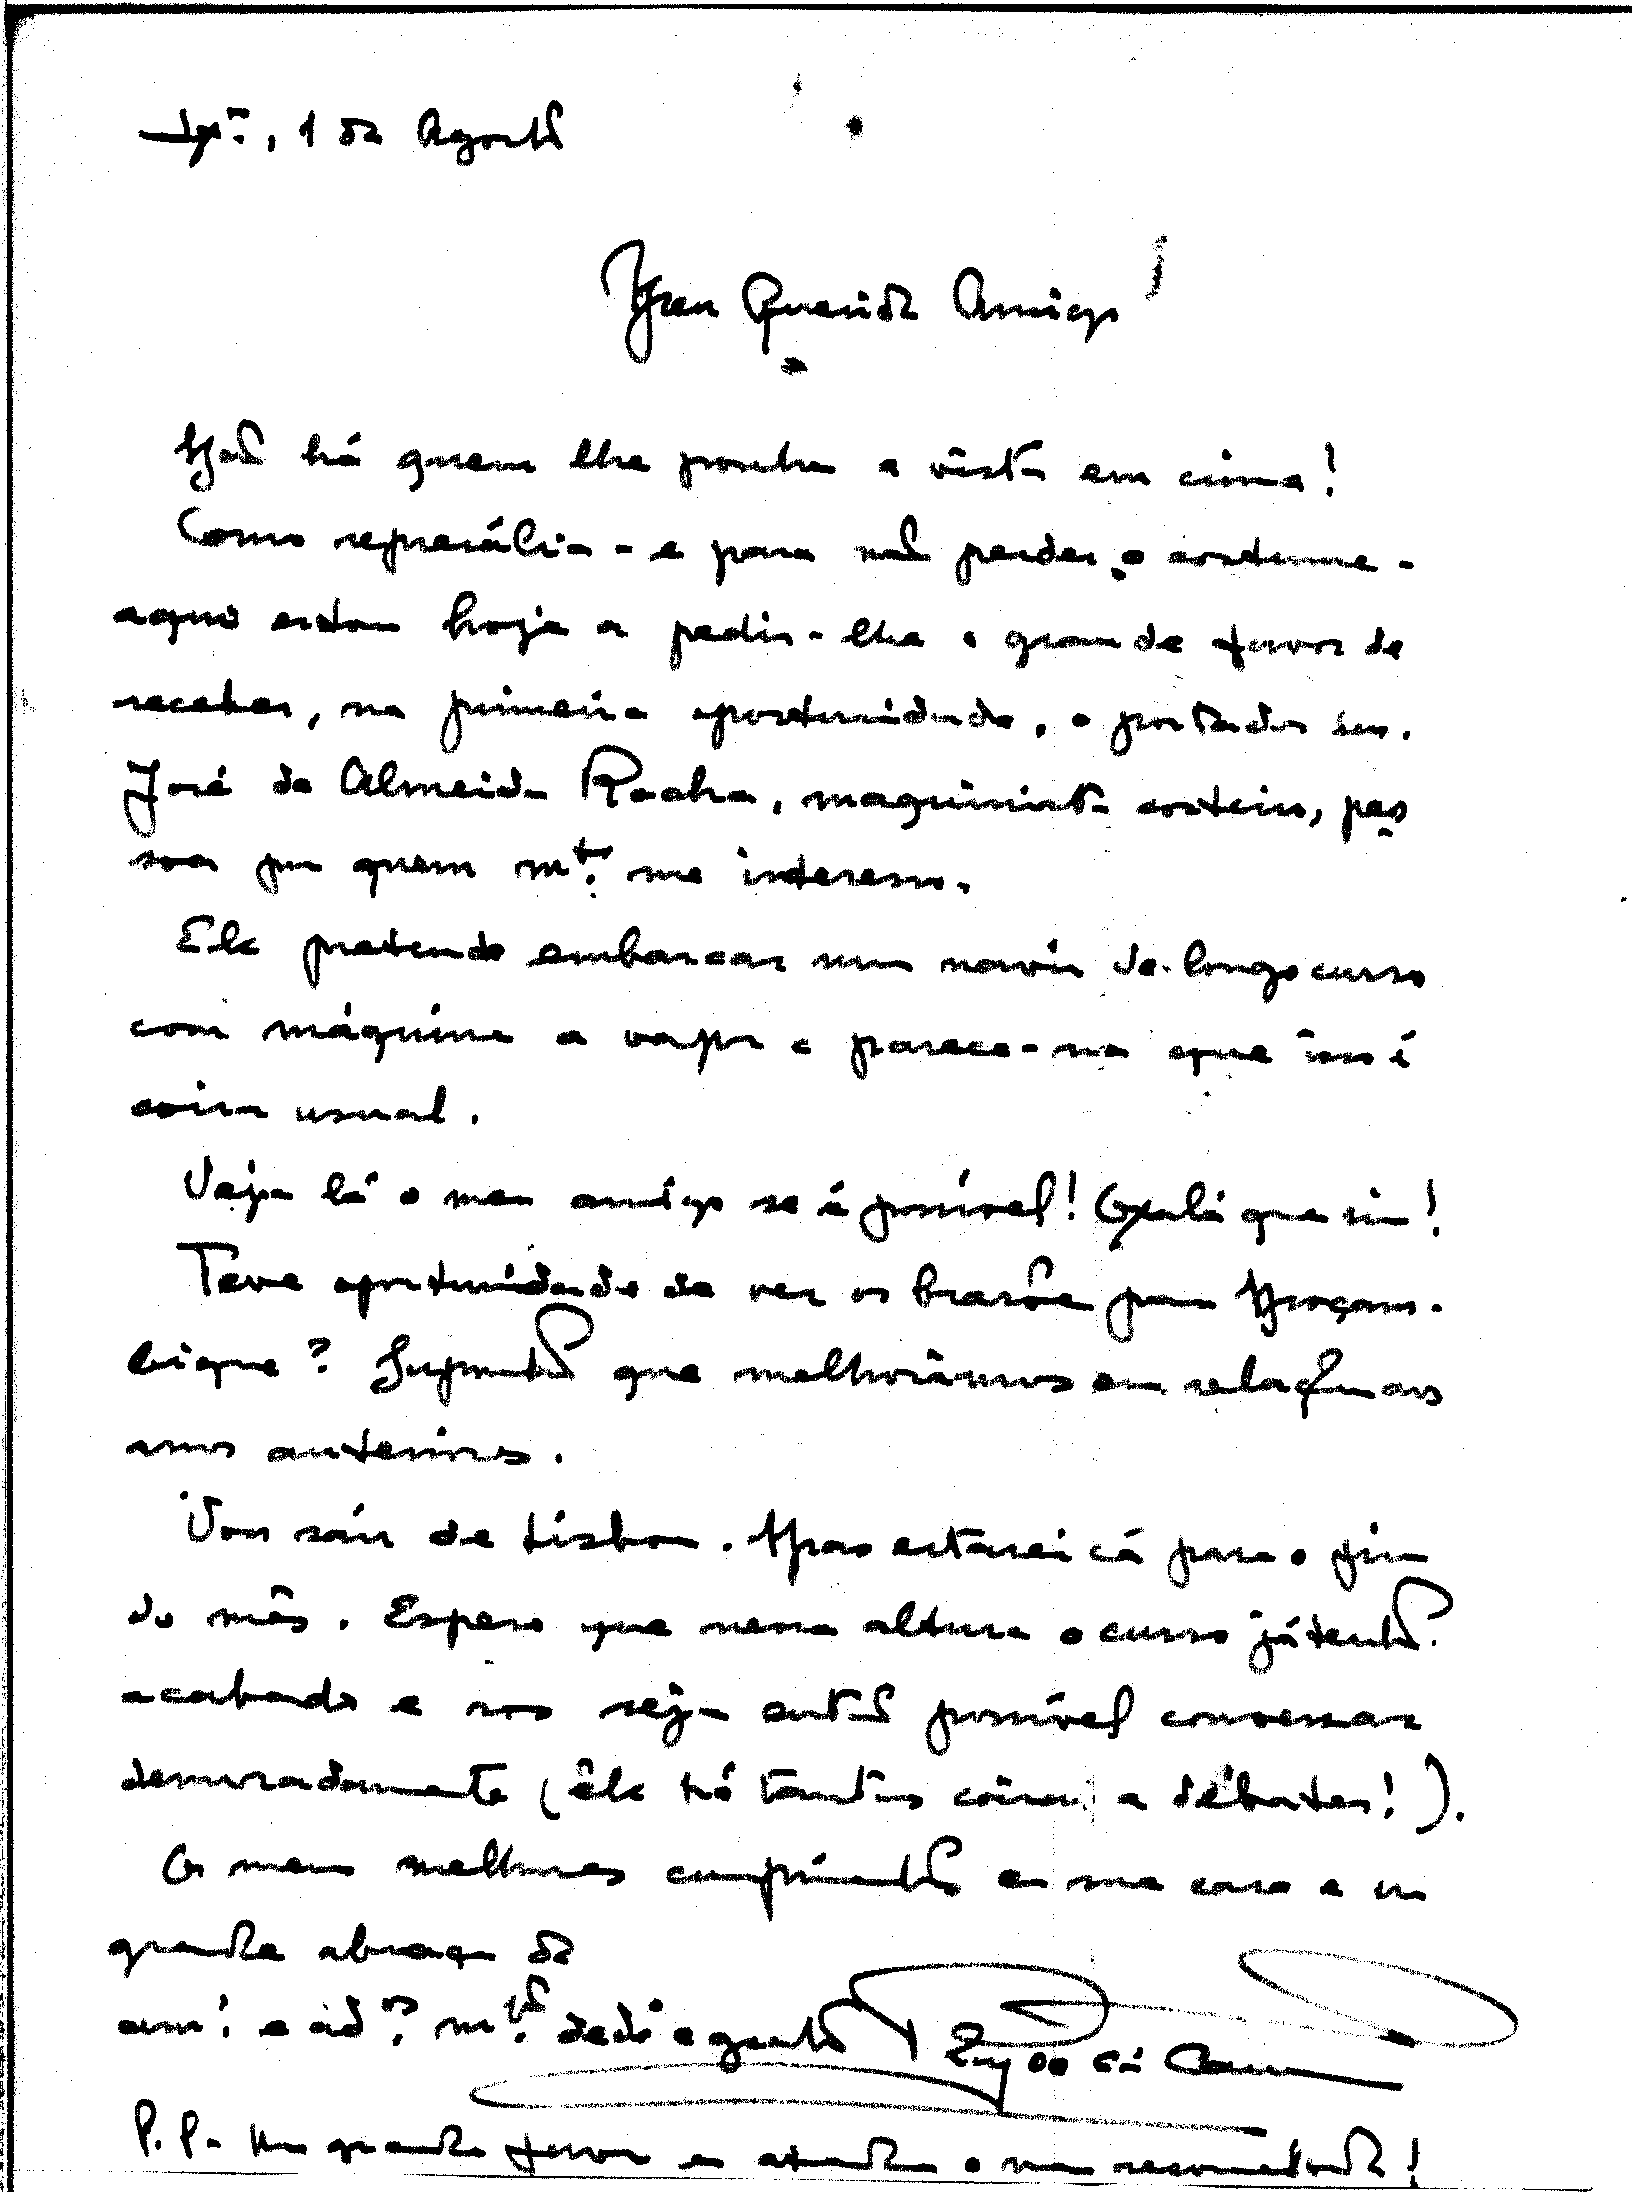 Lx.ª, 1 de Agosto
Meu Querido Amigo
Não há quem lhe ponha a vista em cima!
Como represália - e para não perder o costume -
aqui estou hoje a pedir-lhe o grande favor de
receber, na primeira oportunidade, o portador seu.
José de Almeida Rocha, maquinista costeiro, pes
soa por quem mt.º me interesso.
Ele pretende embarcar num navio de longo curso
com máquina a vapor e parece-me que isso é
coisa usual.
Veja lá o meu amigo se é possível! Oxalá que sim!
Teve oportunidade de ver os brasões para Moçam-
bique? Suponho que melhorámos em relação aos
anos anteriores.
Vou sair de Lisboa. Mas estarei cá para o fim
do mês. Espero que nessa altura o curso já tenha
acabado e nos seja então possível conversar
demoradamente (êle há tantas coisas a debater!).
Os meus melhores cumprimentos em sua casa e um
grande abraço do
am.º e ad.ºʳ mt.º dedº e grato
P.P. - Um grande favor em atender o meu recomendado!